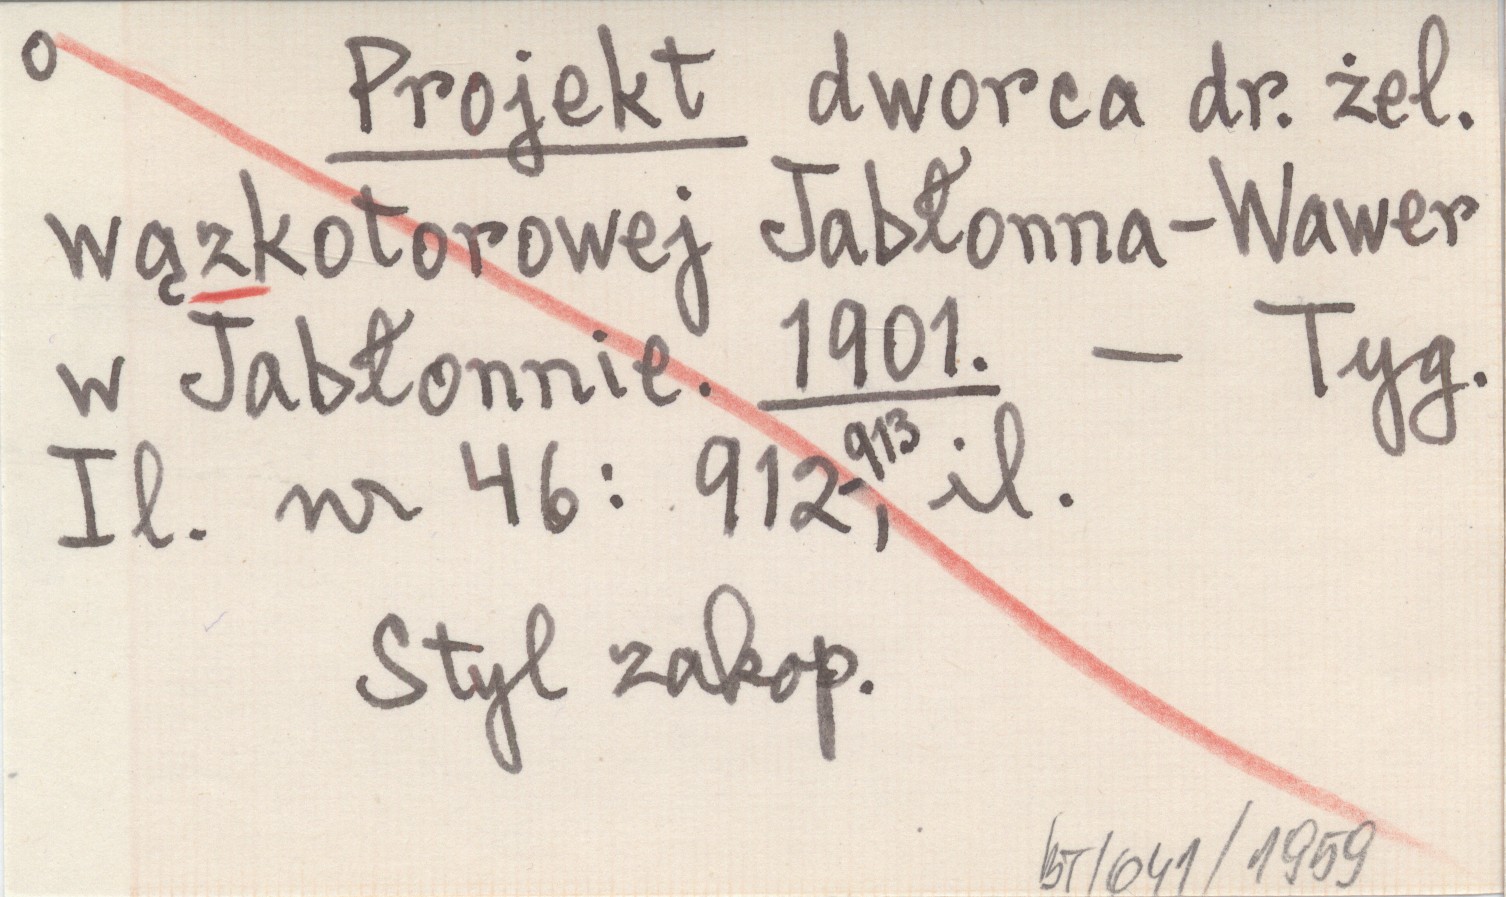 o Projekt dworca dr. żel.
wązkotorowej Jabłonna-Wawer
w Jabłonnie. 1901. — Tyg.
Il. nr 46: 912-913, il.
Styl zakop.
BT/641/1959